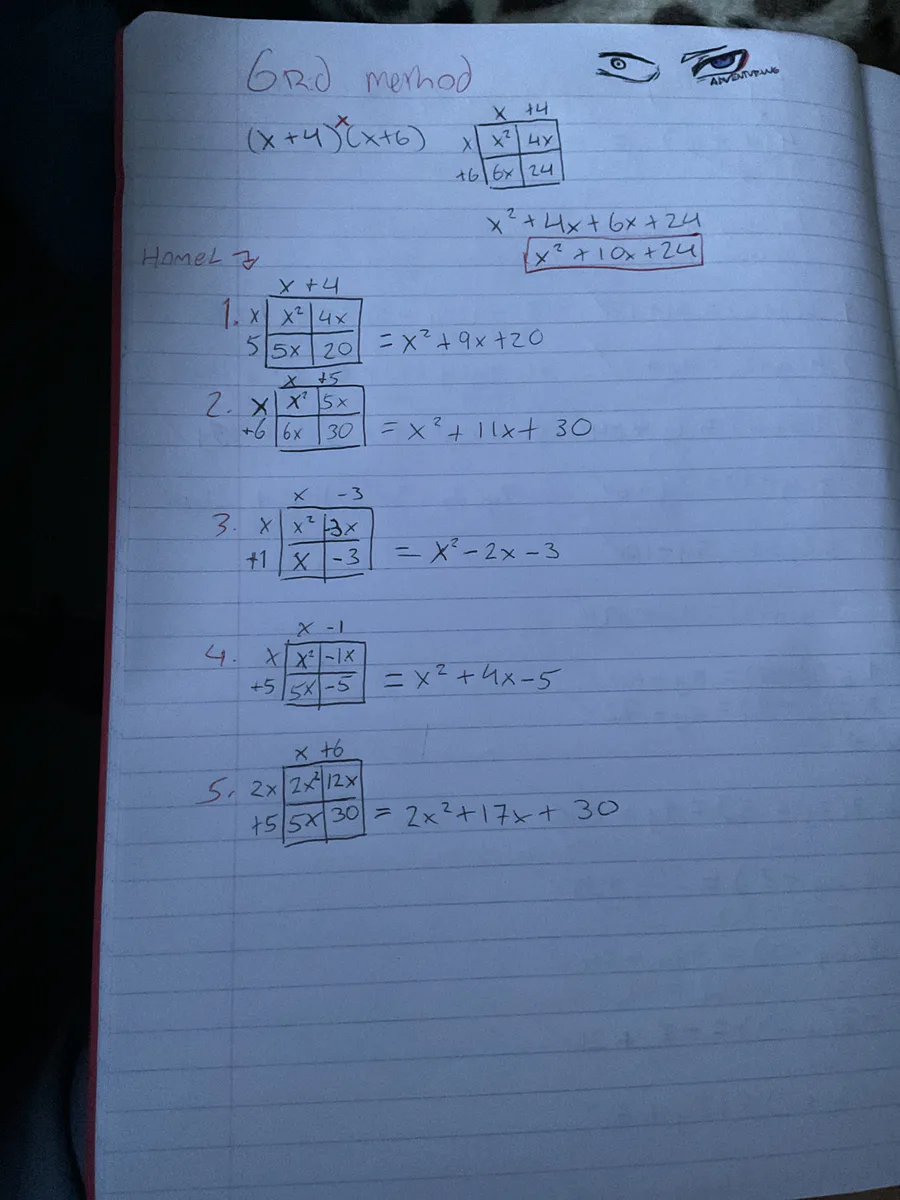 Grid method
ADVENTURING
(x+4)×(x+6)
x +4
x x² 4x
+6 6x 24
x²+4x+6x+24
x²+10x+24
x +4
1. x x² 4x
5 5x 20 = x²+9x+20
x +5
2. x x² 5x
+6 6x 30 = x²+11x+30
x -3
3. x x² -3x
+1 x -3 = x²-2x-3
x -1
4. x x² -1x
+5 5x -5 = x²+4x-5
x +6
5. 2x 2x² 12x
+5 5x 30 = 2x²+17x+30